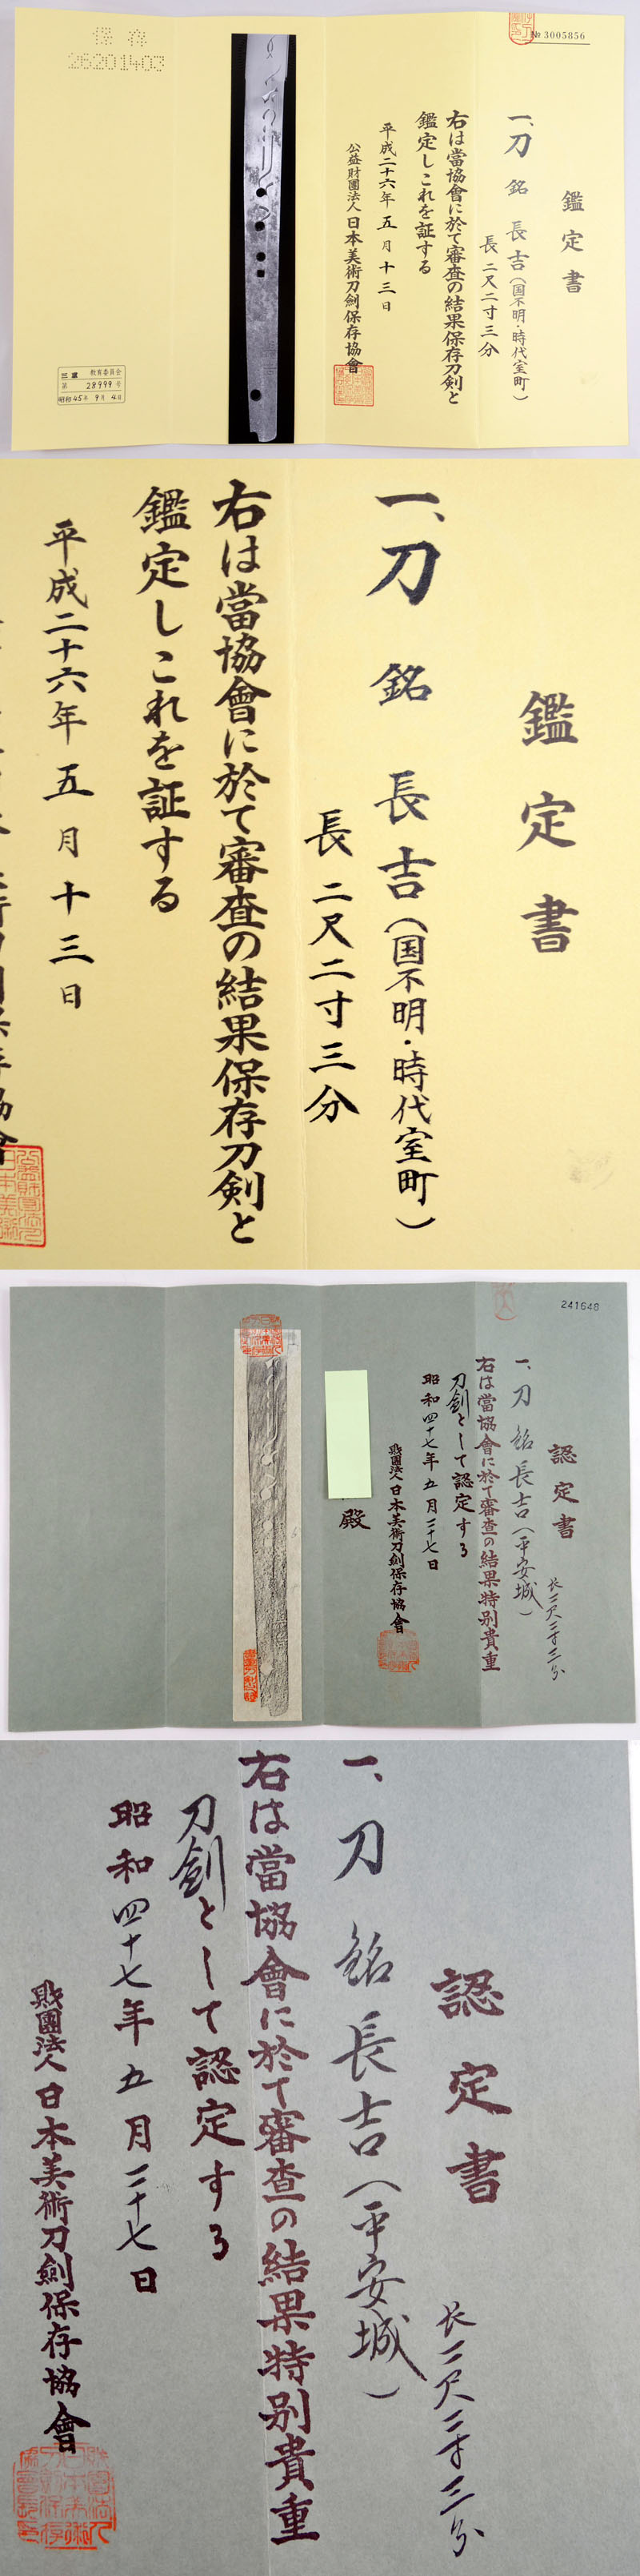 № 3005856
鑑定書
一、刀 銘 長吉(国不明・時代室町)
長 二尺二寸三分
右は當協會に於て審査の結果保存刀剣と
鑑定しこれを証する
平成二十六年 五月十三日
公益財團法人 日本美術刀剣保存協會
保存
26201403
三重 教育委員会
第 28999 号
昭和45年 9月 4日
鑑定書
一、刀 銘 長吉(国不明・時代室町)
長 二尺二寸三分
右は當協會に於て審査の結果保存刀剣と
鑑定しこれを証する
平成二十六年 五月十三日
241648
認定書
長二尺二寸三分
一、刀 銘 長吉(平安城)
右は當協會に於て審査の結果特別貴重
刀劍として認定する
昭和四十七年五月二十七日
財團法人 日本美術刀劍保存協會
殿
認定書
長二尺二寸三分
一、刀 銘 長吉(平安城)
右は當協會に於て審査の結果特別貴重
刀劍として認定する
昭和四十七年五月二十七日
財團法人 日本美術刀劍保存協會